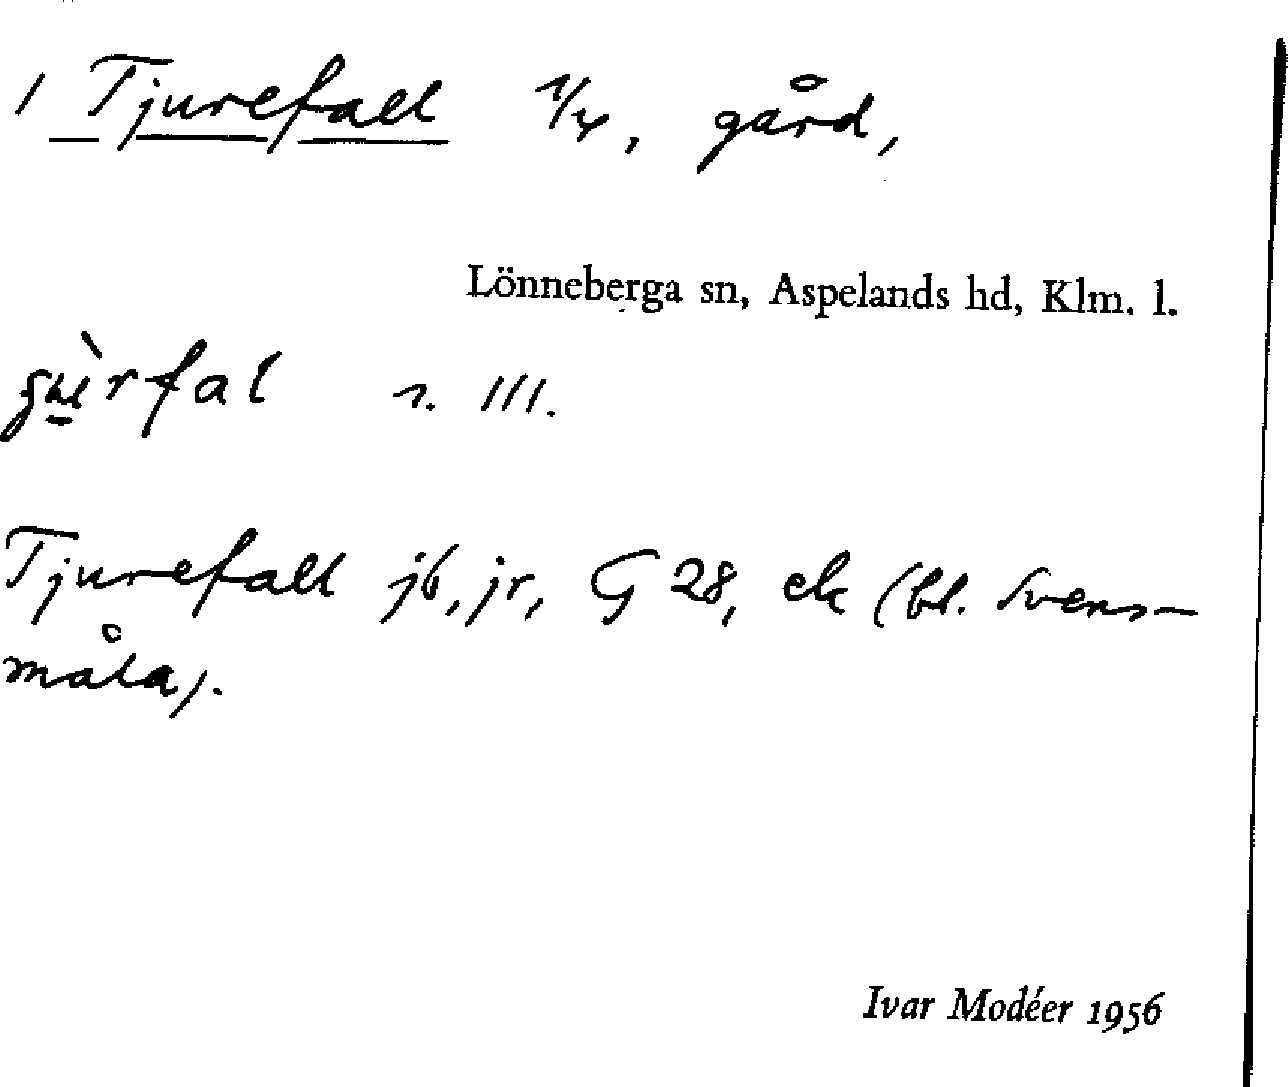 / Tjurefall 1/4, gård,
Lönneberga sn, Aspelands hd, Klm. l.
fal 1. III.
Tjurefall jb, jr, G 28, ek (bl. Svens-
måla).
Ivar Modéer 1956